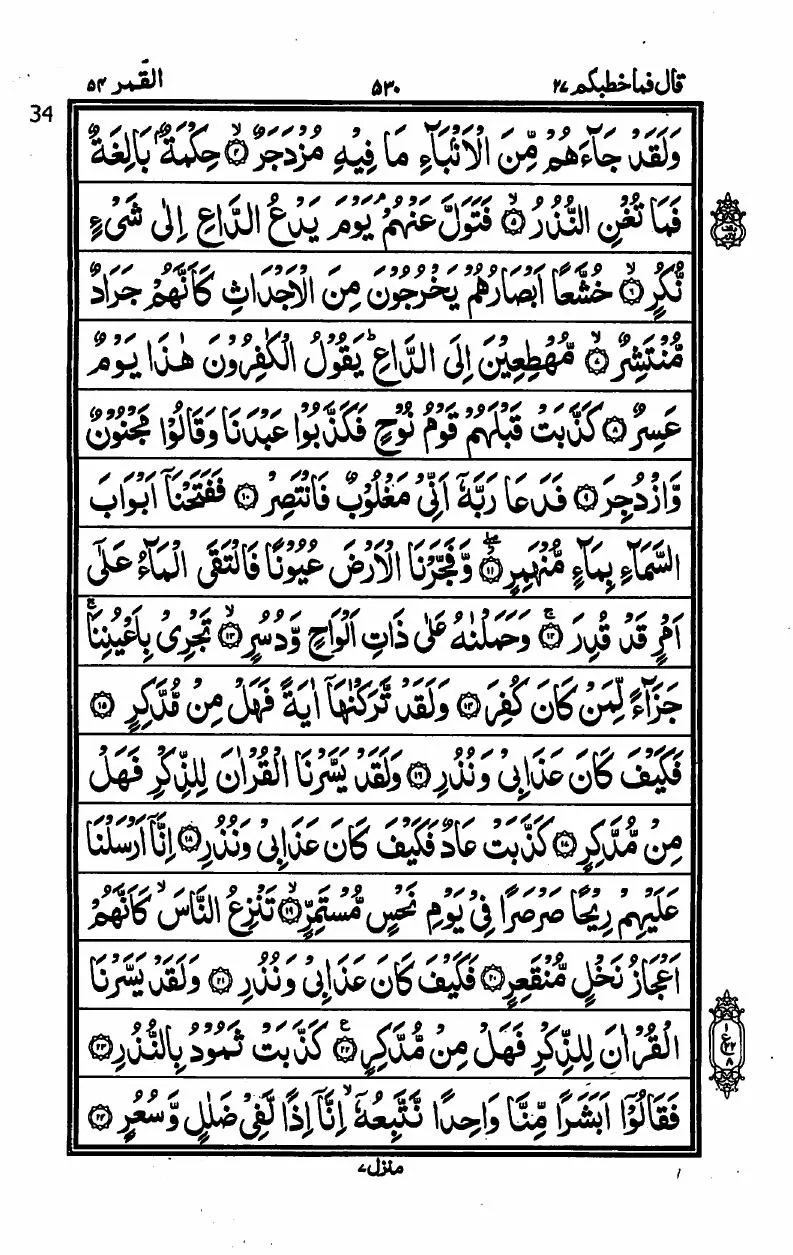 قال فما خطبکم ۲۷ ۵۳۰ القمر ۵۴
34
وَلَقَدْ جَآءَهُمْ مِّنَ الْاَنْۢبَآءِ مَا فِیْهِ مُزْدَجَرٌ ۙ۴ حِكْمَةٌۢ بَالِغَةٌ
فَمَا تُغْنِ النُّذُرُ ۙ۵ فَتَوَلَّ عَنْهُمْ ۘ یَوْمَ یَدْعُ الدَّاعِ اِلٰی شَیْءٍ
نُّكُرٍ ۙ۶ خُشَّعًا اَبْصَارُهُمْ یَخْرُجُوْنَ مِنَ الْاَجْدَاثِ كَاَنَّهُمْ جَرَادٌ
مُّنْتَشِرٌ ۙ۷ مُّهْطِعِیْنَ اِلَی الدَّاعِ ؕ یَقُوْلُ الْكٰفِرُوْنَ هٰذَا یَوْمٌ
عَسِرٌ ۸ كَذَّبَتْ قَبْلَهُمْ قَوْمُ نُوْحٍ فَكَذَّبُوْا عَبْدَنَا وَقَالُوْا مَجْنُوْنٌ
وَّازْدُجِرَ ۹ فَدَعَا رَبَّهٗۤ اَنِّیْ مَغْلُوْبٌ فَانْتَصِرْ ۱۰ فَفَتَحْنَاۤ اَبْوَابَ
السَّمَآءِ بِمَآءٍ مُّنْهَمِرٍ ۱۱ وَّفَجَّرْنَا الْاَرْضَ عُیُوْنًا فَالْتَقَی الْمَآءُ عَلٰۤی
اَمْرٍ قَدْ قُدِرَ ۚ۱۲ وَحَمَلْنٰهُ عَلٰی ذَاتِ اَلْوَاحٍ وَّدُسُرٍ ۙ۱۳ تَجْرِیْ بِاَعْیُنِنَا ۚ
جَزَآءً لِّمَنْ كَانَ كُفِرَ ۱۴ وَلَقَدْ تَّرَكْنٰهَاۤ اٰیَةً فَهَلْ مِنْ مُّدَّكِرٍ ۱۵
فَكَیْفَ كَانَ عَذَابِیْ وَنُذُرِ ۱۶ وَلَقَدْ یَسَّرْنَا الْقُرْاٰنَ لِلذِّكْرِ فَهَلْ
مِنْ مُّدَّكِرٍ ۱۷ كَذَّبَتْ عَادٌ فَكَیْفَ كَانَ عَذَابِیْ وَنُذُرِ ۱۸ اِنَّاۤ اَرْسَلْنَا
عَلَیْهِمْ رِیْحًا صَرْصَرًا فِیْ یَوْمِ نَحْسٍ مُّسْتَمِرٍّ ۙ۱۹ تَنْزِعُ النَّاسَ ۙ كَاَنَّهُمْ
اَعْجَازُ نَخْلٍ مُّنْقَعِرٍ ۲۰ فَكَیْفَ كَانَ عَذَابِیْ وَنُذُرِ ۲۱ وَلَقَدْ یَسَّرْنَا
الْقُرْاٰنَ لِلذِّكْرِ فَهَلْ مِنْ مُّدَّكِرٍ ۲۲ ع كَذَّبَتْ ثَمُوْدُ بِالنُّذُرِ ۲۳
ع ۱ ۲۲ ۸
فَقَالُوْۤا اَبَشَرًا مِّنَّا وَاحِدًا نَّتَّبِعُهٗۤ ۙ اِنَّاۤ اِذًا لَّفِیْ ضَلٰلٍ وَّسُعُرٍ ۲۴
منزل ۷